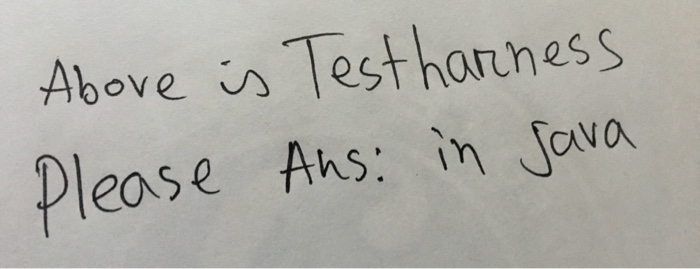 Above is Testharness
Please Ans: in Java